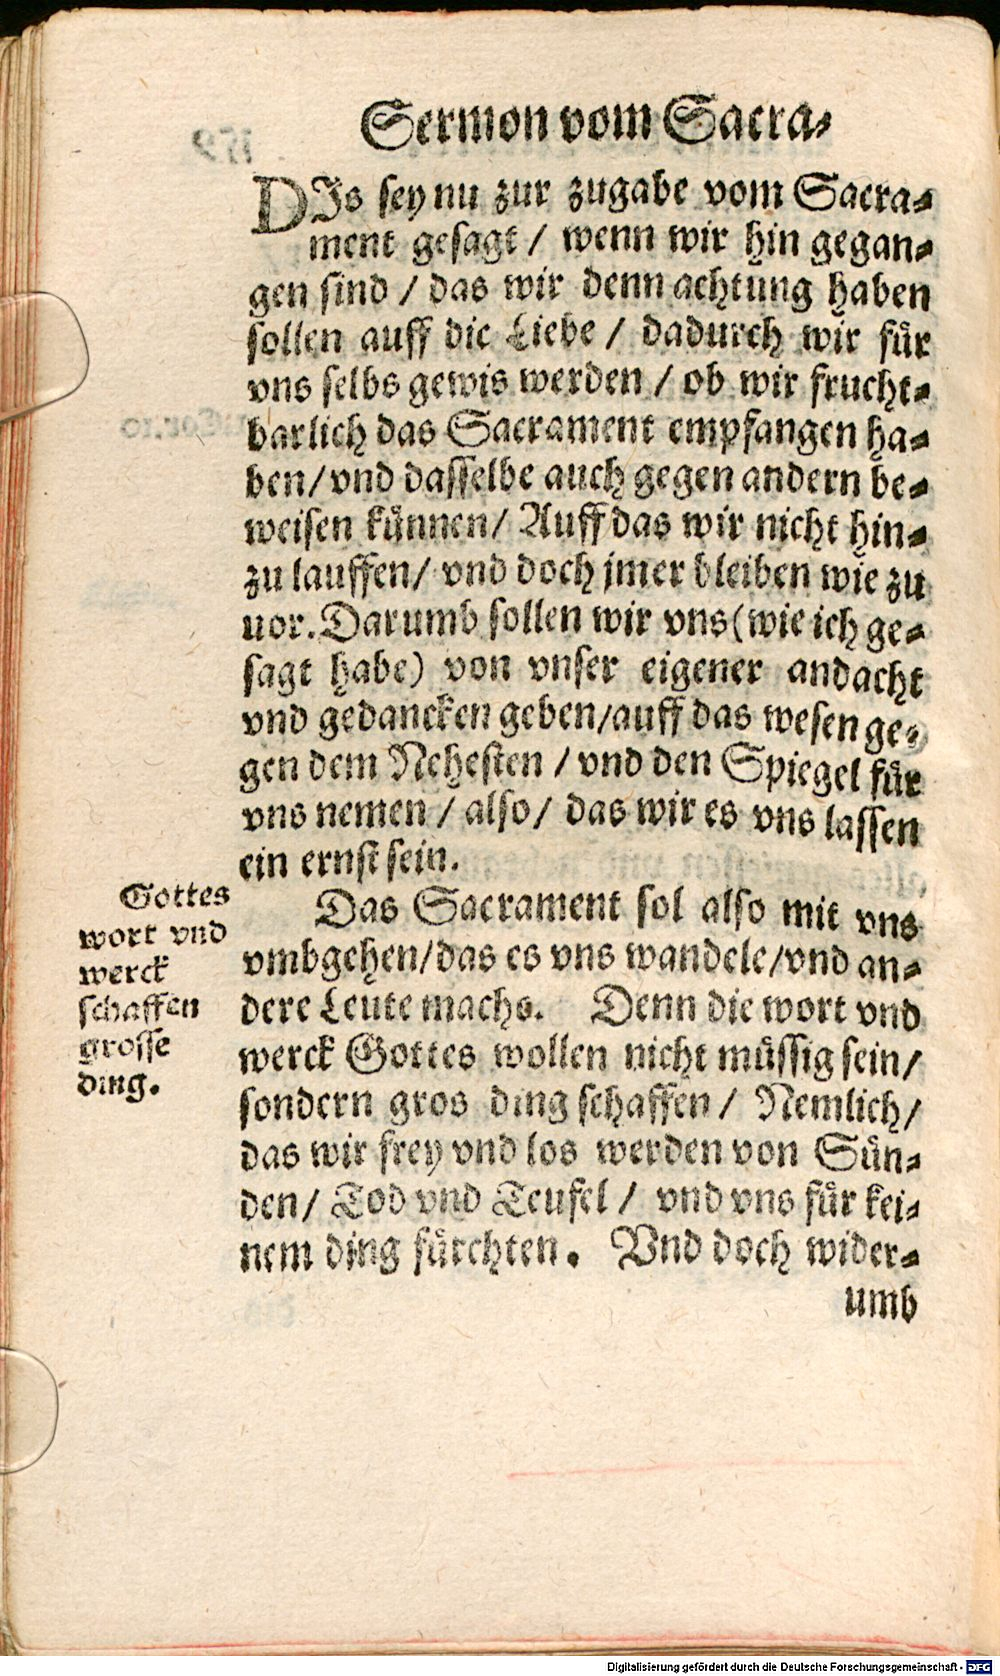 Sermon vom Sacra-
DIs sey nu zur zugabe vom Sacra-
ment gesagt / wenn wir hin gegan-
gen sind / das wir denn achtung haben
sollen auff die Liebe / dadurch wir für
vns selbs gewis werden / ob wir frucht-
barlich das Sacrament empfangen ha-
ben/ vnd dasselbe auch gegen andern be-
weisen künnen/ Auff das wir nicht hin-
zu lauffen/ vnd doch jmer bleiben wie zu
uor. Darumb sollen wir vns (wie ich ge-
sagt habe) von vnser eigener andacht
vnd gedancken geben/auff das wesen ge-
gen dem Nehesten / vnd den Spiegel für
vns nemen / also/ das wir es vns lassen
ein ernst sein.
Das Sacrament sol also mit vns
vmbgehen/das es vns wandele/vnd an-
dere Leute machs. Denn die wort vnd
werck Gottes wollen nicht müssig sein/
sondern gros ding schaffen / Nemlich/
das wir frey vnd los werden von Sün-
den/ Tod vnd Teufel / vnd vns für kei-
nem ding fürchten. Vnd doch wider-
umb
Gottes
wort vnd
werck
schaffen
grosse
ding.
Digitalisierung gefördert durch die Deutsche Forschungsgemeinschaft - DFG